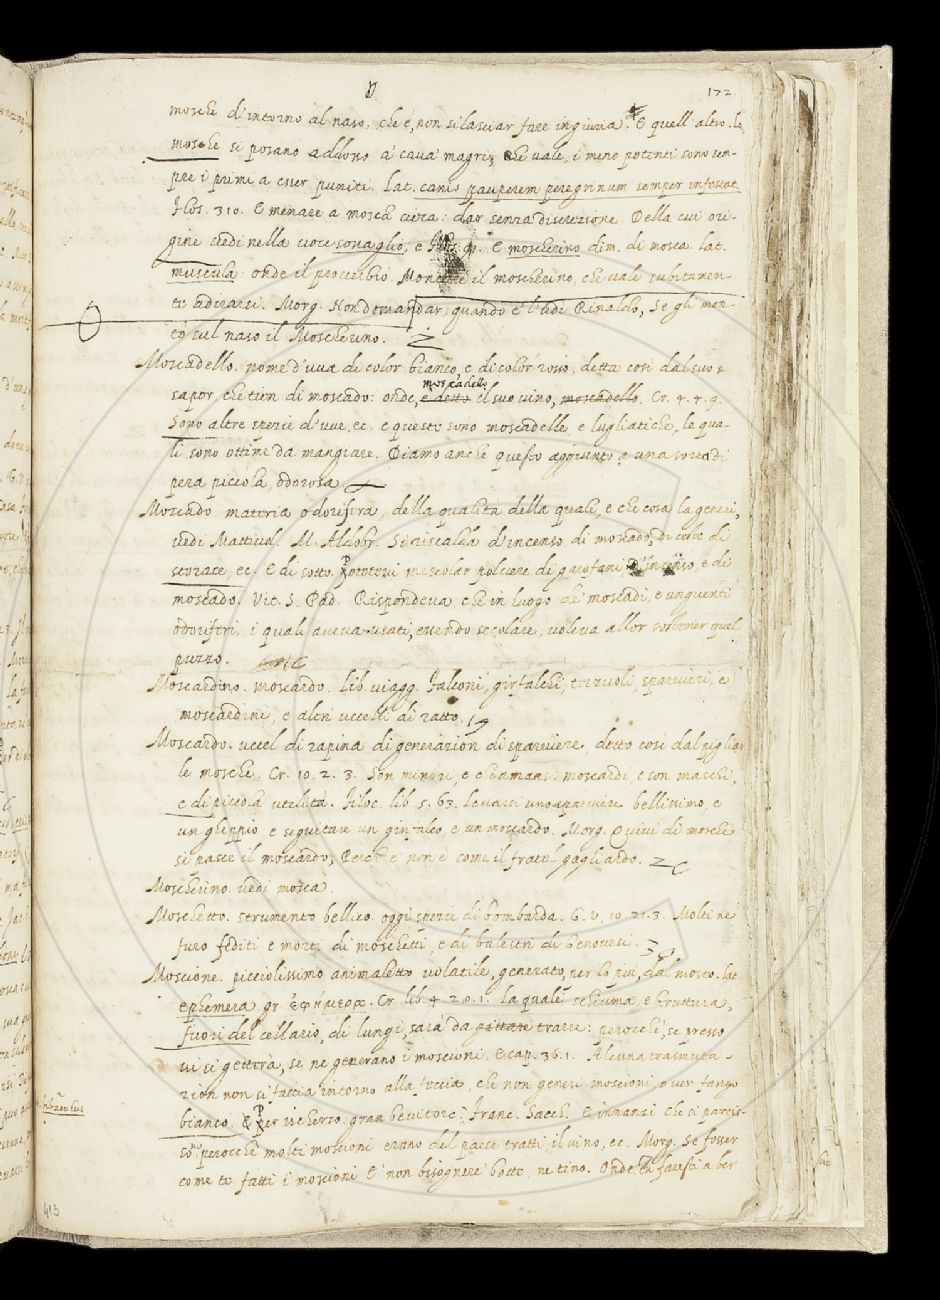 172
mosche d'intorno al naso, che è, non si lasciar fare ingiuria. E quell'altro. Le
mosche si posano addosso a' cava' magri, che vale, i meno potenti sono sem-
pre i primi a esser puniti. Lat. canis pauperem peregrinum semper infestat.
Flos. 310. E menare a mosca cieca: dar senza discrezione. Della cui ori-
gine vedi nella voce sonaglio, e E moscherino dim. di mosca. Lat.
muscula: onde il proverbio. Montare il moscherino, che vale subitamen-
te adirarsi. Morg. Non domandar, quando e' l'udì Rinaldo, Se gli mon-
tò sul naso il Moscherino.
Moscadello. nome d'uva di color bianco, e di color rosso, detta così dal suo
moscadello
sapor, che tien di moscado: onde, e detto el suo vino, moscadello. Cr. 4. 4. 9.
Sono altre spezie d'uve, ec. e queste sono moscadelle e lugliatiche, le qua-
li sono ottime da mangiare. Diamo anche questo aggiunto a una sorta di
pera picciola, odorosa.
Moscado materia odorifera, della qualità della quale, e che cosa la generi,
vedi Mattiuol. M. Aldobr. Si riscalda d'incenso di moscado, di
storace, ec. E di sotto. Prototevi mescolar polvere di garofani d'incenso, e di
moscado. Vit. S. Pad. Rispondeva che in luogo de' moscadi, e unguenti
odoriferi, i quali aveva usati, essendo secolare, voleva allor sostener quel
puzzo.
Moscardino. moscardo. Lib. viagg. Falconi, girfalchi, terzuoli, sparvieri, e
moscardini, e altri uccelli di ratto.
Moscardo. uccel di rapina di generazion di sparviere, detto così dal pigliar
le mosche. Cr. 10. 2. 3. Son minori, e chiamansi moscardi, e son maschi,
e di piccola utilità. Filoc. lib. 5. 63. Levarsi uno sparviere bellissimo, e
un gheppio e seguitare un girfalco, e un moscardo. Morg. Quivi di mosche
si pasce il moscardo, Perch' e' non è come il fratel gagliardo.
Moscherino. vedi mosca.
Moschetto. strumento bellico. oggi spezie di bombarda. G. V. 10. 21. 3. Molti ne
furo fediti e morti di moschetti, e di balestri di Genovesi.
Moscione. picciolissimo animaletto volatile, generato, per lo più, dal mosto. lat.
ephemera gr. ἐφήμερα. Cr. lib. 4. 20. 1. La quale schiuma, e bruttura,
fuori del cellario, di lungi, sarà da gittare trarre: perocchè, se presso
vi si getterà, se ne generano i moscioni. E cap. 36. 1. Alcuna trasmuta-
zion non si faccia intorno alla feccia, che non generi moscioni, over fango
bianco. E Per ischerzo. gran bevitore. Franc. Sacch. E innanzi che si partis-
sono, perocchè molti moscioni erano del paese tratti, il vino, ec. Morg. Se fosser
come te fatti i moscioni E' non bisognere' botte, ne tino. Onde, Tu faresti a ber
413